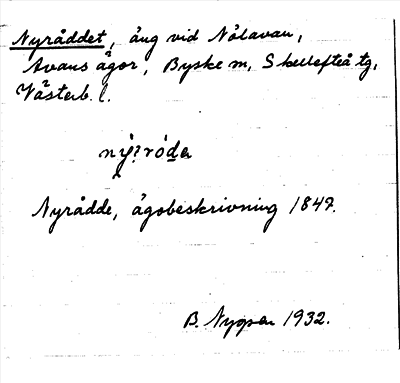 Nyråddet, äng vid Nålavan,
Avans ägor, Byske m, Skellefteå tg,
Västerb. l.
Nyrådde, ägobeskrivning 1847.
B. Nygren 1932.